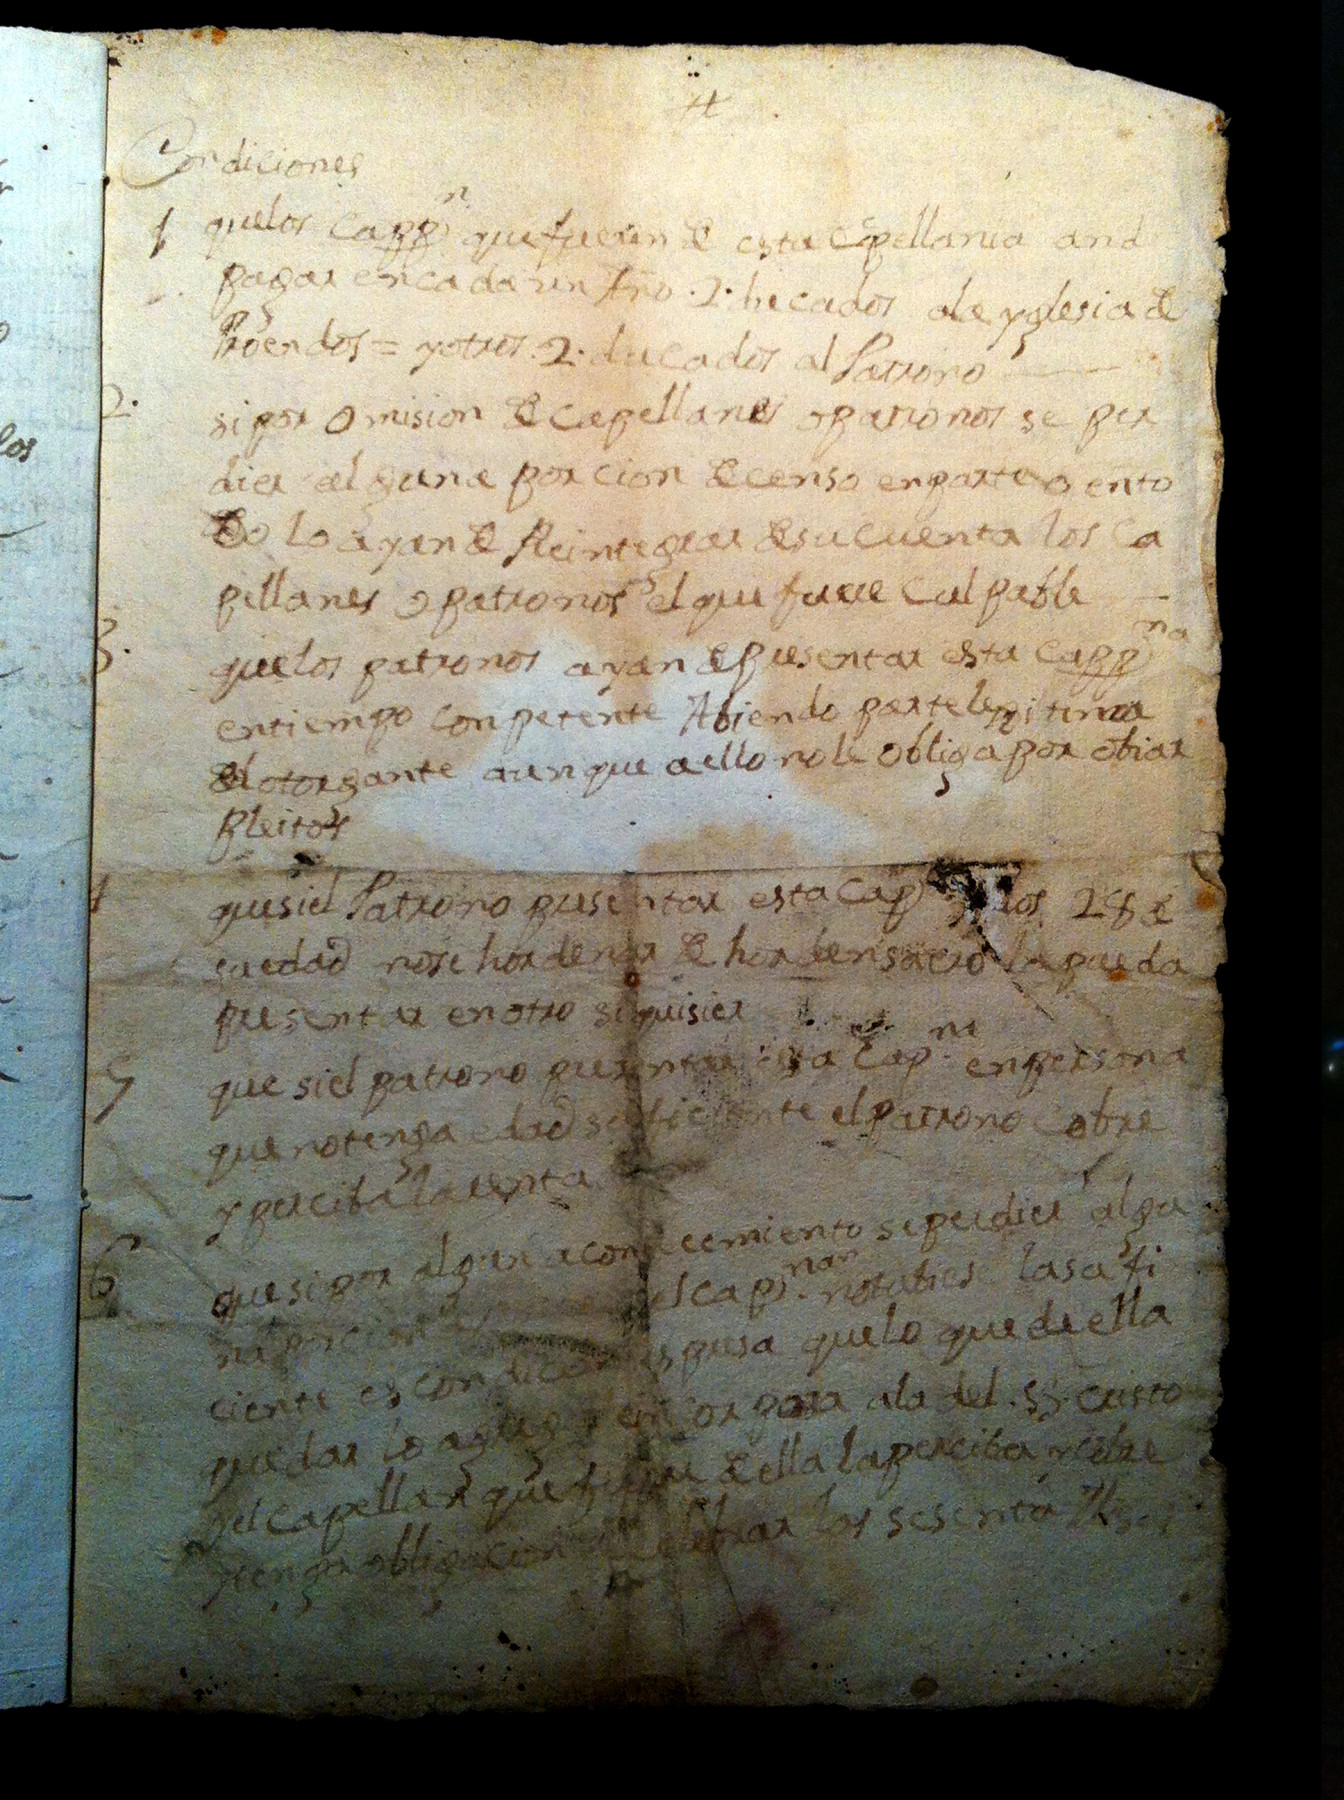 Condiciones
1 quelos Capp.n que fueren de esta Capellania and
pagar encada un Año .2. hucados ale yglesia de
Proendos = y otros .2. ducados al Patrono
2. si por omision de capellanes o patronos se per
dier alguna porcion de censo en parte o ento
do lo ayan de Reintegrar de su cuenta los Ca
pellanes o patronos el que fuere Culpable
3. quelos patronos ayan de presentar esta Capp.na
entiempo conpetente Abiendo parte legitima
del otorgante aunque a ello no le obliga por obiar
pleitos
4 que si el Patrono presentar esta Cap los 28 de
su edad no se hordenar de horden sacro la pueda
presentar en otro si quisier
5 que si el patrono presentar esta Cap.na en persona
que no tenga edad suficiente el patrono cobre
y perciba la renta
6 que si por algun acontecemiento se perdier algu
na porcion el cap.nan lasafi
ciente es condicion espresa que lo que de ella
quedar lo agreg encorpora ala del .SS. cristo
y el capellan que fuere de ella la perciba y cobre
y tenga obligacion de celebrar las sesenta